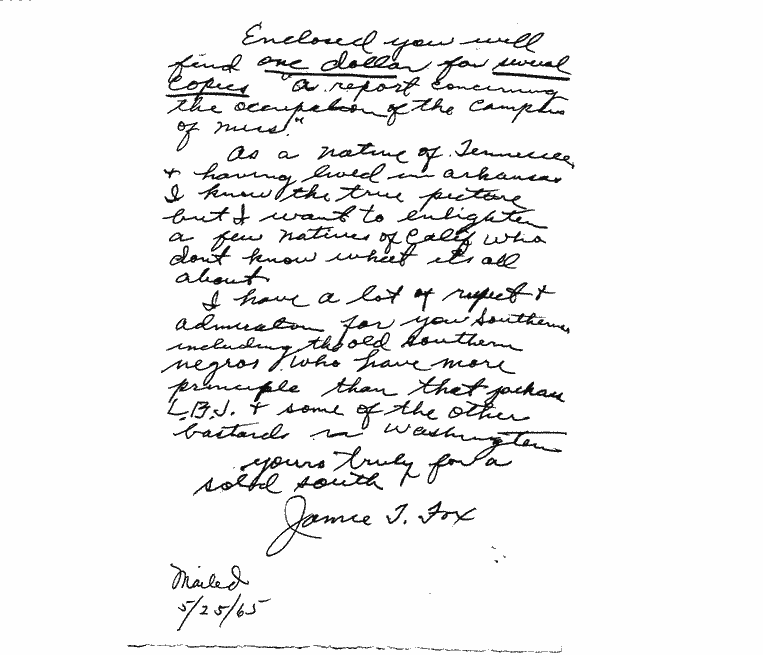 Enclosed you will
find one dollar for several
copies "a report concerning
the occupation of the campus
of miss."
As a native of Tennessee
+ having lived in arkansas
I know the true picture
but I want to enlighten
a few natives of Calif who
dont know what its all
about.
I have a lot of respect +
admiration for you Southerners
including the old southern
negros who have more
principle than that jackass
L.B.J. + some of the other
bastards in Washington
yours truly for a
solid south
T. Fox
Mailed
5/25/65